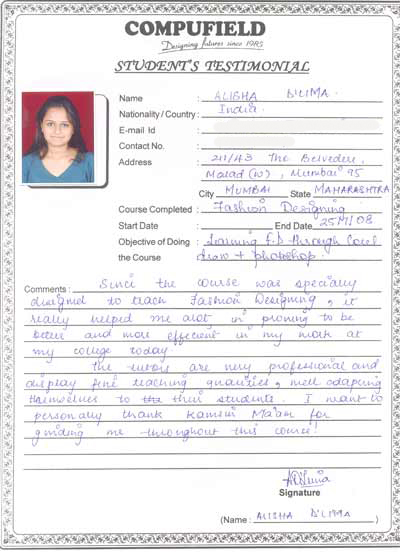 COMPUFIELD
Designing futures since 1985
STUDENT'S TESTIMONIAL
Name : ALISHA D'LIMA.
Nationality / Country : India.
E-mail Id :
Contact No. :
Address : 211/43 The Belvedere,
Malad (W), Mumbai 95
City MUMBAI State MAHARASHTRA
Course Completed : Fashion Designing
Start Date End Date 25/11/08
Objective of Doing : Learning F.D through Corel
the Course draw + photoshop.
Comments : Since the course was specially
designed to teach Fashion Designing, it
really helped me alot in proning to be
better and more effecient in my work at
my college today.
The tutors are very professional and
display fine teaching qualities, well adapting
themselves to their students. I want to
personally thank Kamini Ma'am for
guiding me throughout this course!
Signature
(Name : ALISHA D'LIMA )